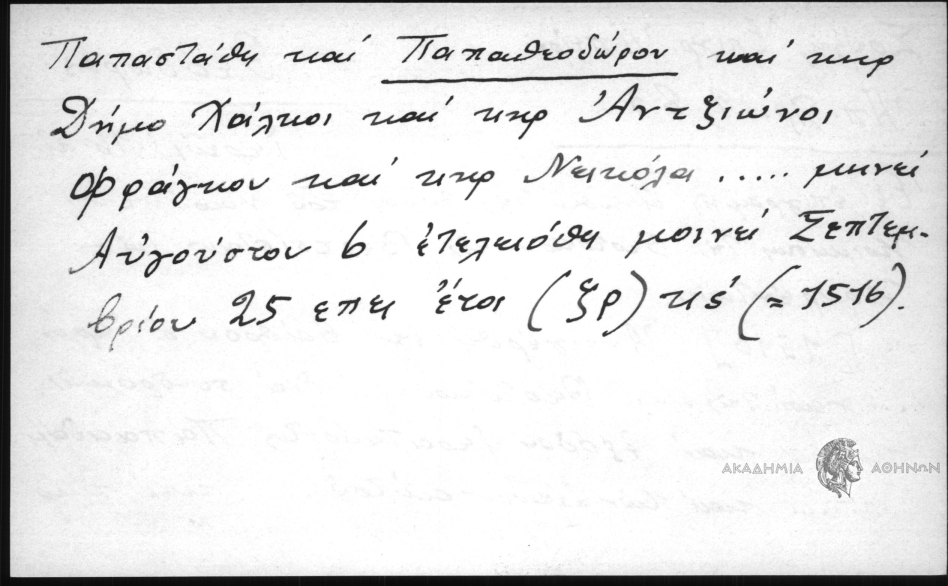 Παπαστάθη καί Παπαθεοδώρου καί κυρ
Δήμο Χάλκοι καί κυρ Ἀντζιώνοι
Φράγκου καί κυρ Νεικόλα ..... μηνεί
Αὐγούστου 6 ἐτελειόθη μοινεί Σεπτεμ-
βρίου 25 επει ἔτοι (ξρ) κέ (= 1516).
ΑΚΑΔΗΜΙΑ ΑΘΗΝΩΝ